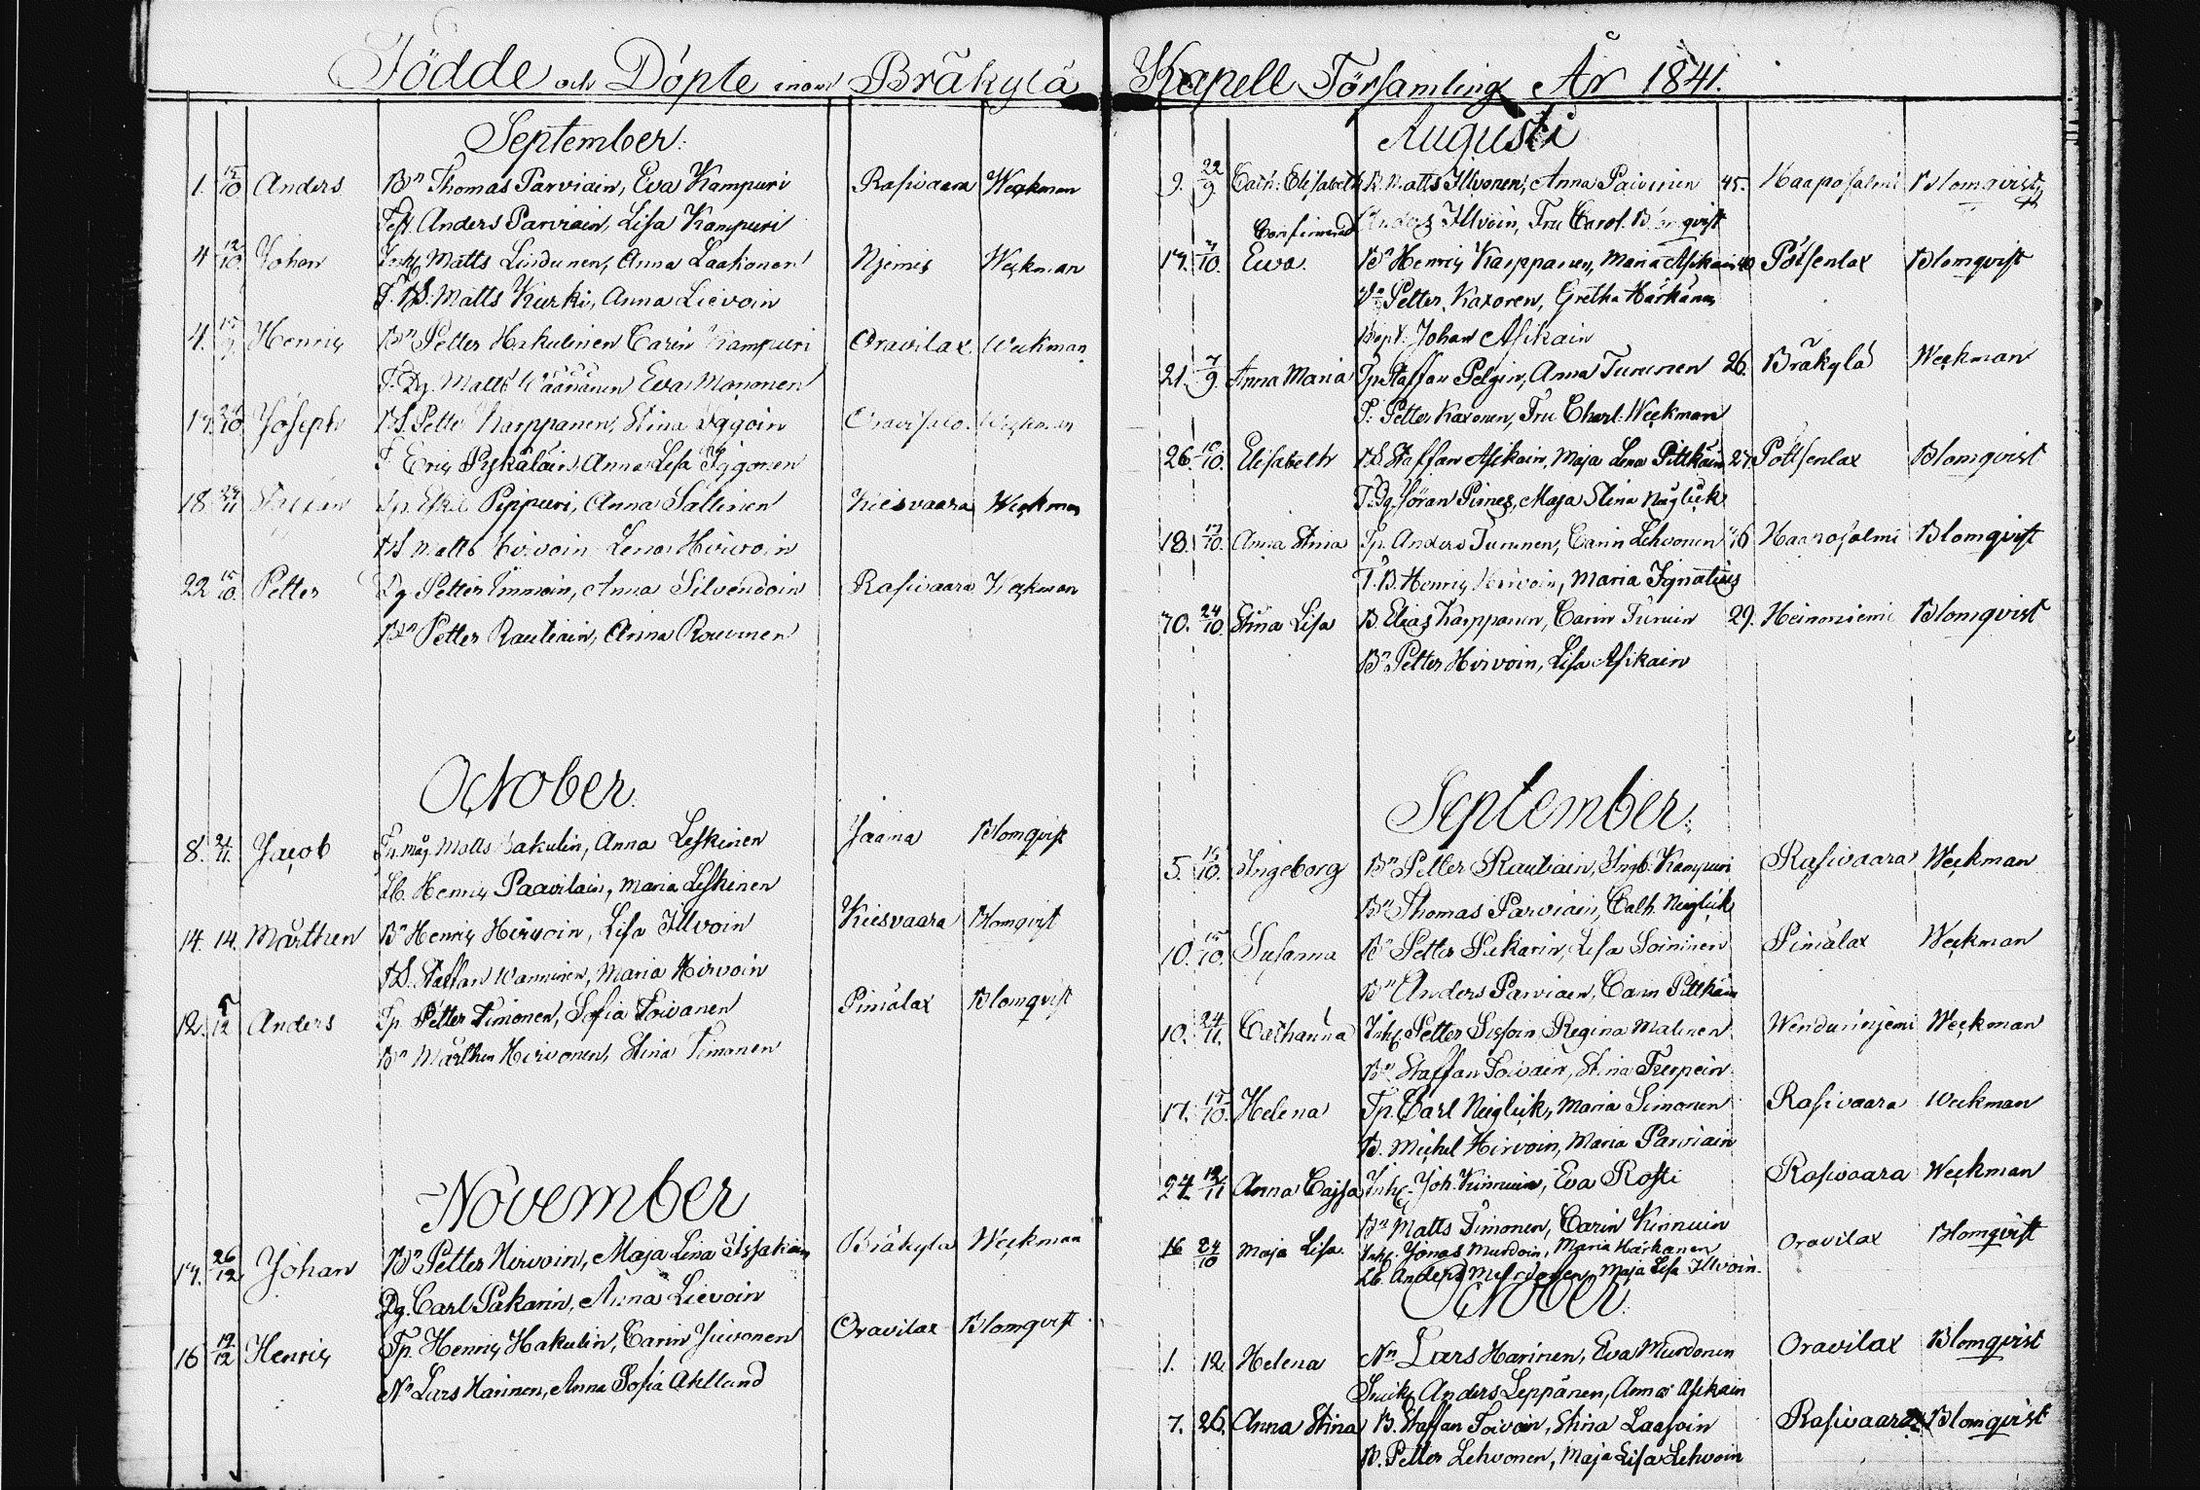 Födde och Döpte inom Bräkylä Kapell Församling År 1841.
September.
1. 12/10 Anders Bn Thomas Parviain, Eva Kampuri Rasivaara Weckman
Test. Anders Parviain, Lisa Kampuri
4 12/10 Johan Matts Lindunen, Anna Laakonen Njemis Weckman
T. BS. Matts Kurki, Anna Lievoin
4. Henric Bn Petter Hakulinen Carin Kampuri Oravilax Weckman
T. Dg. Matts Wäänänen Eva Mononen
Joseph BS Petter Karppanen, Stina Weckman
T. Eric Pykäläin, Anna Lisa Iggonen
18. Pippuri, Anna Sallinen Kiesvaara Weckman
BS Matts Hirvoin Lena Hirvoin
22 15/10 Petter Dg Petter Immoin, Anna Silvendoin Rasivaara Weckman
Bn Petter Rautiain, Anna Rouvinen
October.
8. 21/11. Jacob Matts Hakulin, Anna Leskinen Jaama Blomqvist
Lb. Henric Paavilain, Maria Leskinen
14. 14. Mårthen Bn Henric Hirvoin, Lisa Illvoin Kiesvaara Blomqvist
BS. Staffan Wanninen, Maria Hirvoin
12. 5/12 Anders Tp. Petter Timonen, Sofia Toivanen Pimälax Blomqvist
Bn Mårthen Hirvonen, Stina Timonen
November
17. 26/12 Johan Bn Petter Hirvoin, Maja Lina Issakain Bräkylä Weckman
Dg. Carl Pakarin, Anna Lievoin
16 19/12 Henric Tp. Henric Hakulin, Carin Juvonen Oravilax Blomqvist
Nn Lars Harinen, Anna Sofia Ahllund
Augusti
9. 22/9 Cath. Elisabeth B. Matts Illvonen, Anna Paivinen 45. Haaposalmi Blomqvist
Confirmerad Anders Illvoin, Fru Carol. Blomqvist
17. /10. Ewa. Bn Henric Karppanen, Maria Asikain 40 Pötsenlax Blomqvist
Petter Kaxonen, Gretha Härkänen
Johan Asikain
21. 7/9 Anna Maria Tp Staffan Pelgin, Anna Turunen 26. Bräkylä Weckman
T: Petter Kaxonen, Fru Charl: Weckman
26. 10/10. Elisabeth BS. Staffan Asikain, Maja Lena Pitkäin 27. Pöttsenlax Blomqvist
T. Dg. Jöran Pirnes, Maja Stina Näglick
18. 17/10. Anna Stina Tp. Anders Turunen, Carin Lehvonen 36 Haaposalmi Blomqvist
T. B. Henric Hirvoin, Maria Ignatius
70. 24/10 Stina Lisa B. Elias Karppanen, Carin Turuin 29. Heinoniemi Blomqvist
Bn Petter Hirvoin, Lisa Asikain
September.
5. /10. Ingeborg Bn Petter Rautiain, Ingb. Kampuri Rasivaara Weckman
Bn Thomas Parviain, Cath. Neiglick
10. 15/10. Susanna Bn Petter Pakarin, Lisa Soininen Pimälax Weckman
Bn Anders Parviaen, Carin Pitkäin
10. 24/11. Catharina Inh. Petter Sissoin, Regina Malinen Wendurinjemi Weckman
Bn. Staffan Toivain, Stina Turpein
17. 17/10. Helena Tp. Carl Neiglick, Maria Simonen Rasivaara Weckman
B. Michel Hirvoin, Maria Parviain
24. 12/11 Anna Cajsa Inh. Joh. Kinnuin, Eva Rosti Rasivaara Weckman
Bn Matts Timonen, Carin Kinnuin
16 24/10 Maja Lisa. Inh. Jonas Murdoin, Maria Härkänen Oravilax Blomqvist
Lb. Anders Murdonen, Maja Lisa Illvoin.
October.
1. 12 Helena Nn Lars Harinen, Eva Murdonen Oravilax Blomqvist
Anders Leppänen, Anna Asikain
7. 26. Anna Stina B. Staffan Toivoin, Stina Laasoin Rasivaara Blomqvist
B. Petter Lehvonen, Maja Lisa Lehvoin